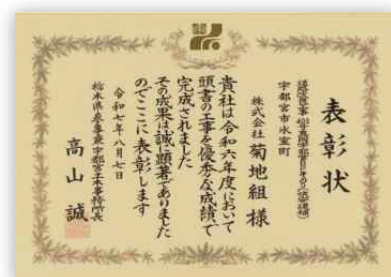 表彰状
宇都宮市氷室町
株式会社 菊地組 様
貴社は令和六年度において
頭書の工事を優秀な成績で
完成されました
その成果は誠に顕著でありました
のでここに表彰します
令和七年八月七日
栃木県参事兼宇都宮土木事務所長
高山 誠